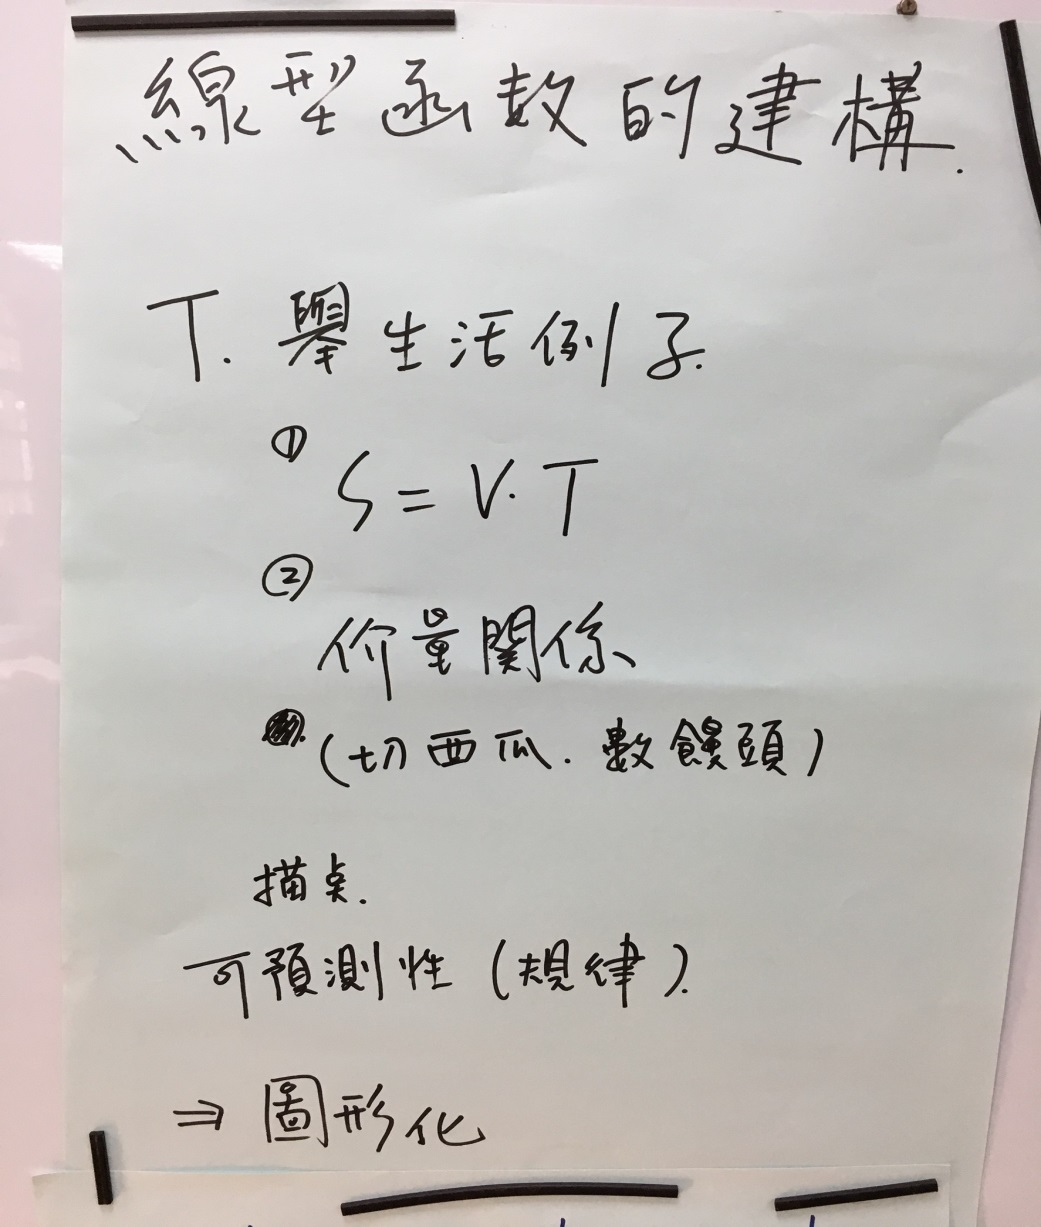 線型函数的建構.
T. 舉生活例子.
①
S = V · T
②
价量関係
(切西瓜. 數饅頭)
描点.
可預測性 (規律).
⇒ 圖形化